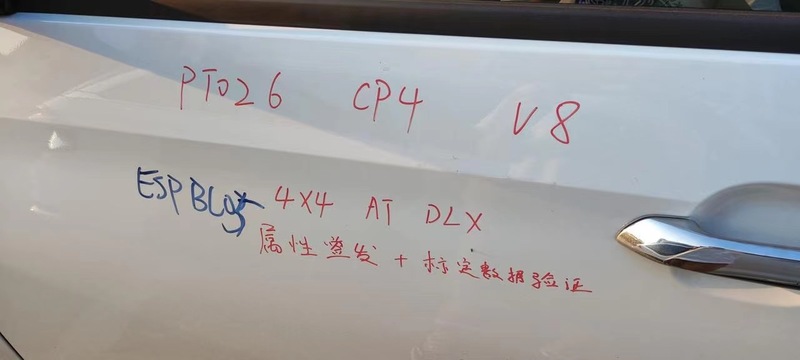 PT026 CP4 V8
ESP 4X4 AT DLX
属性登发 + 标定数据验证